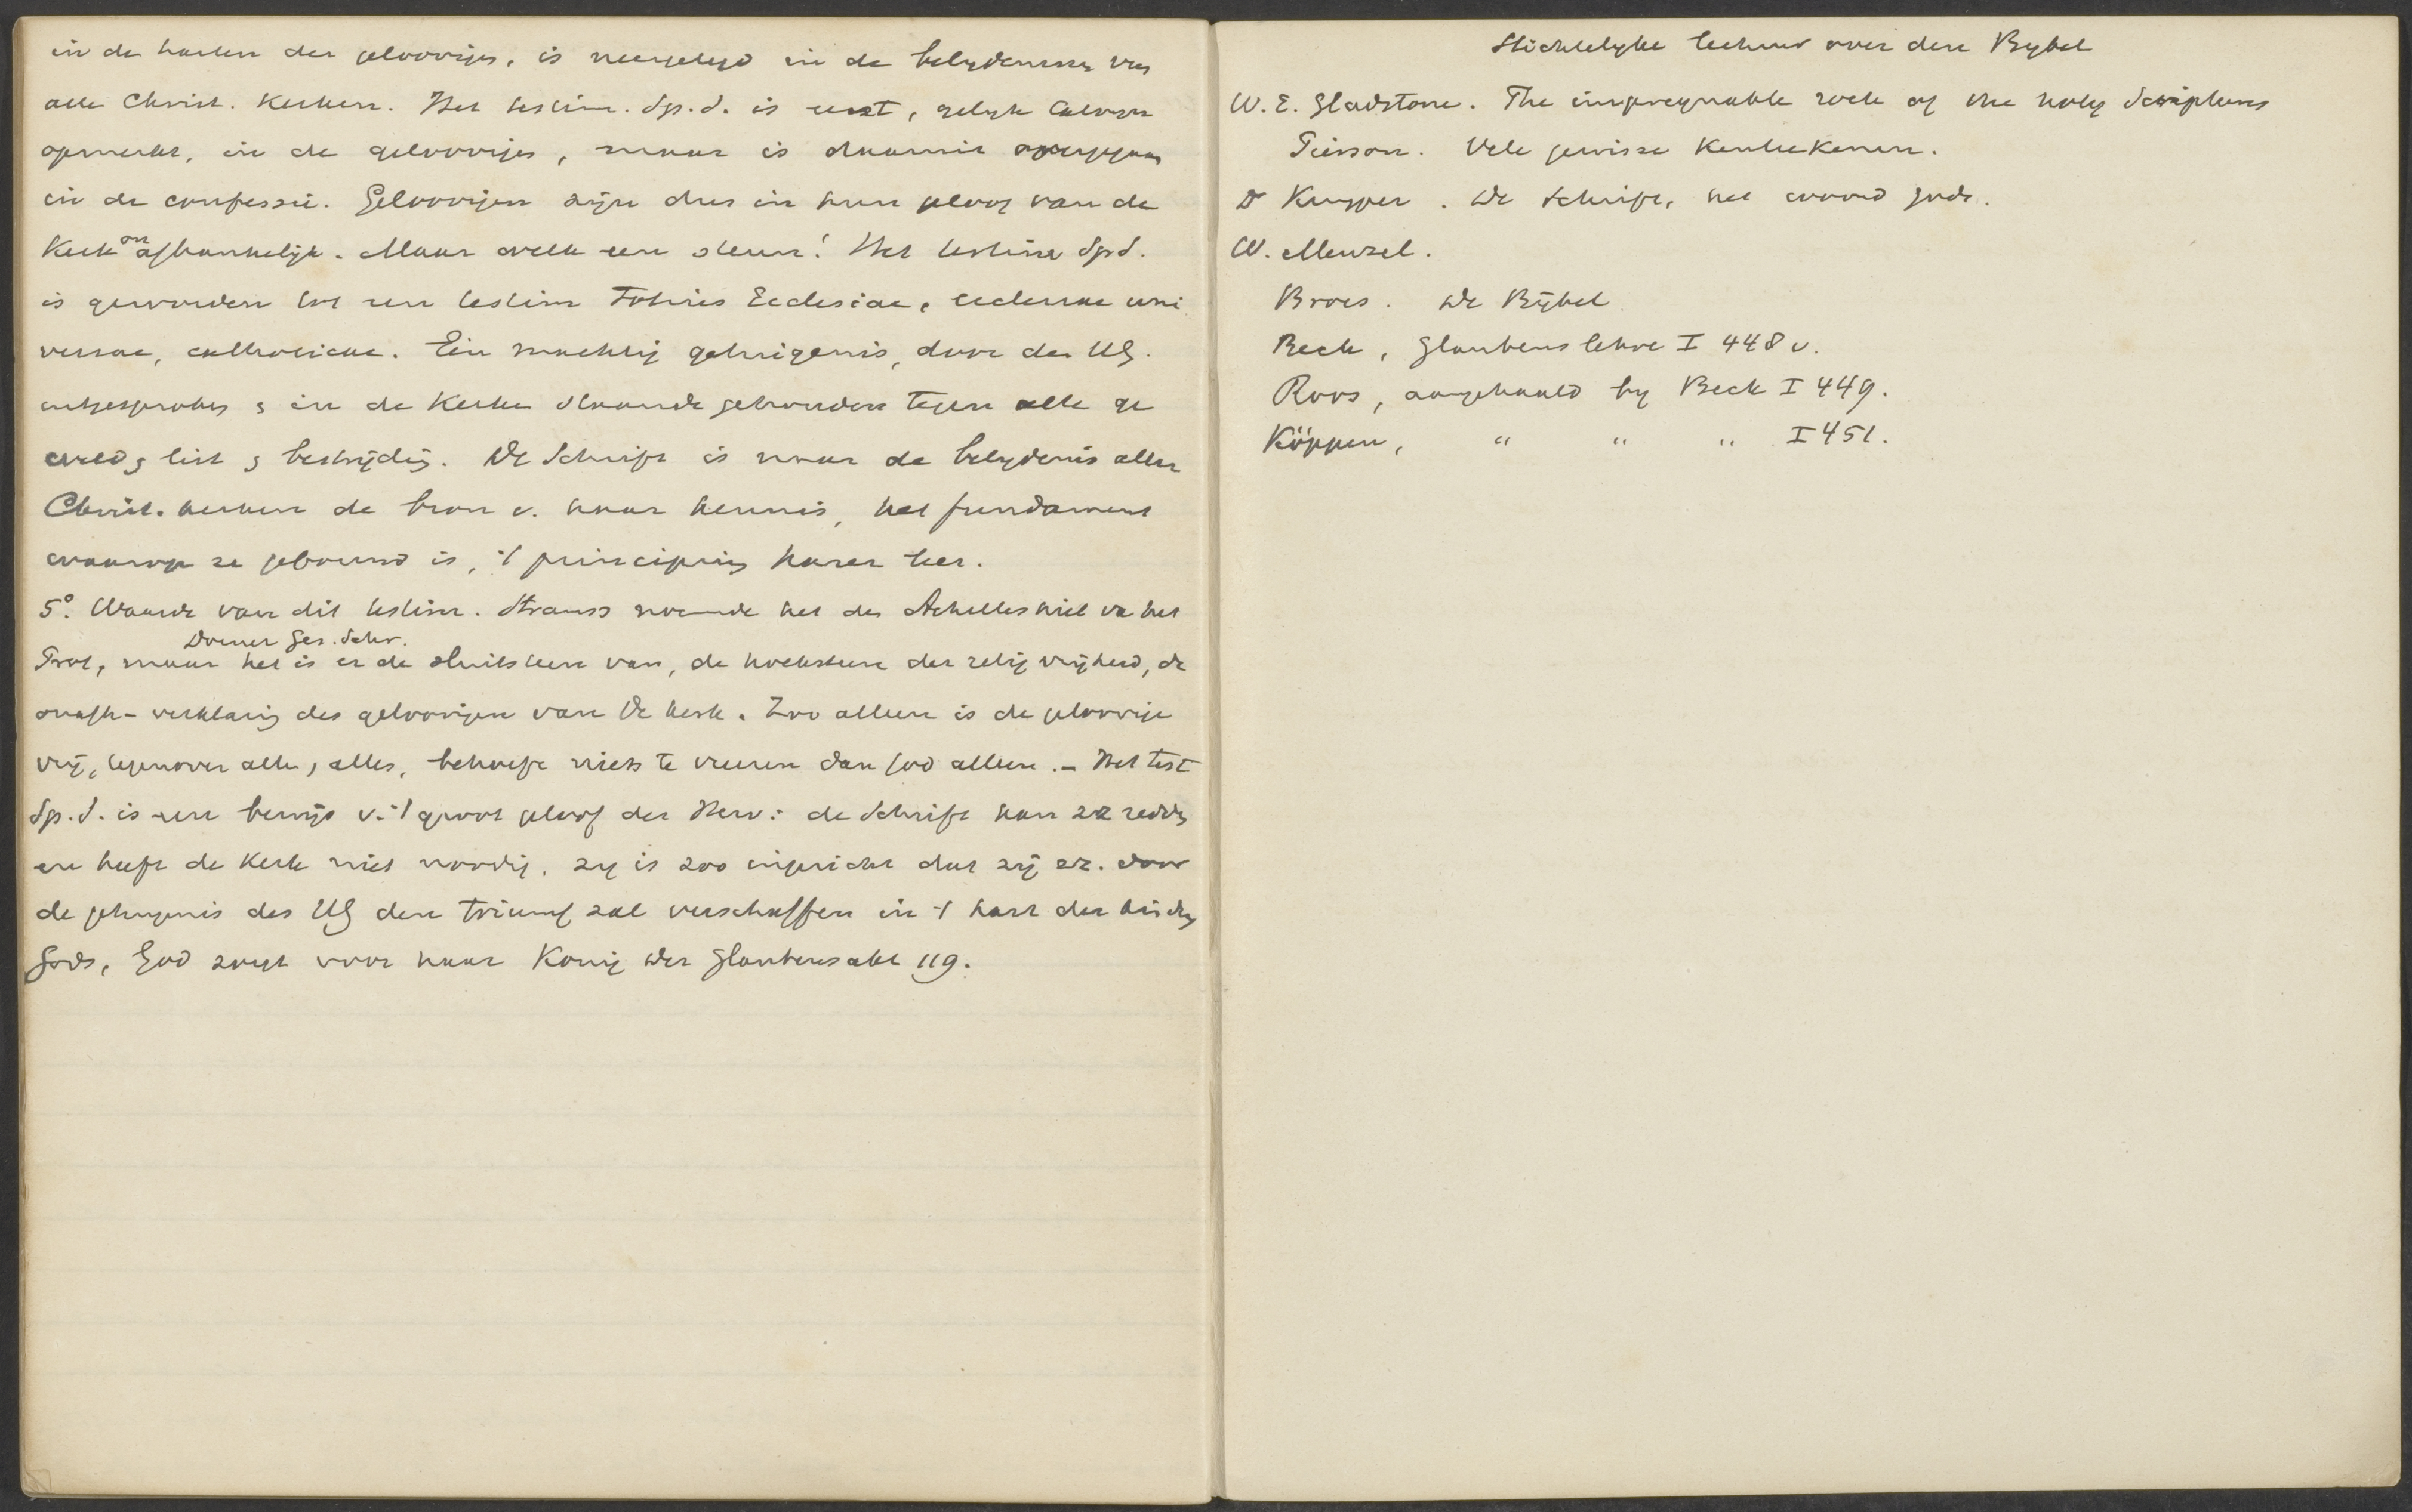 in de harten der geloovigen, is neergelegd in de belydenissen van
alle Christ. Kerken. Het testim. Sp. S. is eerst, gelyk Calvyn
opmerkt, in de geloovigen, maar is daarmit overgegaan
in de confessie. Geloovigen zijn dus in hun geloof van de
Kerk onafhankelijk. Maar welk een steun! Het testim Sp S.
is geworden tot een testim Totius Ecclesiae, ecclesiae uni
versae, catholicae. Een machtig getuigenis, door den HG.
uitgesproken & in de Kerken staande gehouden tegen alle ge
weld & list & bestrijding. De Schrift is naar de belydenis aller
Christ. kerken de bron v. haar kennis, het fundament
waarop ze gebouwd is, 't principium harer leer.
5°. Waarde van dit testim. Strauss noemde het de Achilleshiel va het
Dorner Ges. Schr.
Prot, maar het is er de sluitsteen van, de hoeksteen der relig vrijheid, de
onafh-verklaring des geloovigen van de kerk. Zoo alleen is de geloovige
vrij, tegenover allen, alles, behoeft niets te vreezen dan God alleen. - Het test
Sp. S. is een bewijs v. 't groot geloof der Herv: de Schrift kan zz redden
en heeft de Kerk niet noodig. Zy is zoo ingericht dat zij zz. door
de getuigenis des HG den triumf zal verschaffen in 't hart der kinderen
Gods, God zorgt voor haar König Der Glaubensakt 119.
Stichtelyke lectuur over den Bybel
W. E. Gladstone. The impregnable rock of the holy Scriptures
Pierson. Vele gewisse Kenteekenen.
Dr Kuyper. De Schrift, het woord Gods.
W. Menzel.
Broes. De Bijbel
Beck, Glaubenslehre I 448 v.
Roos, aangehaald by Beck I 449.
Köppen, " " " I 451.